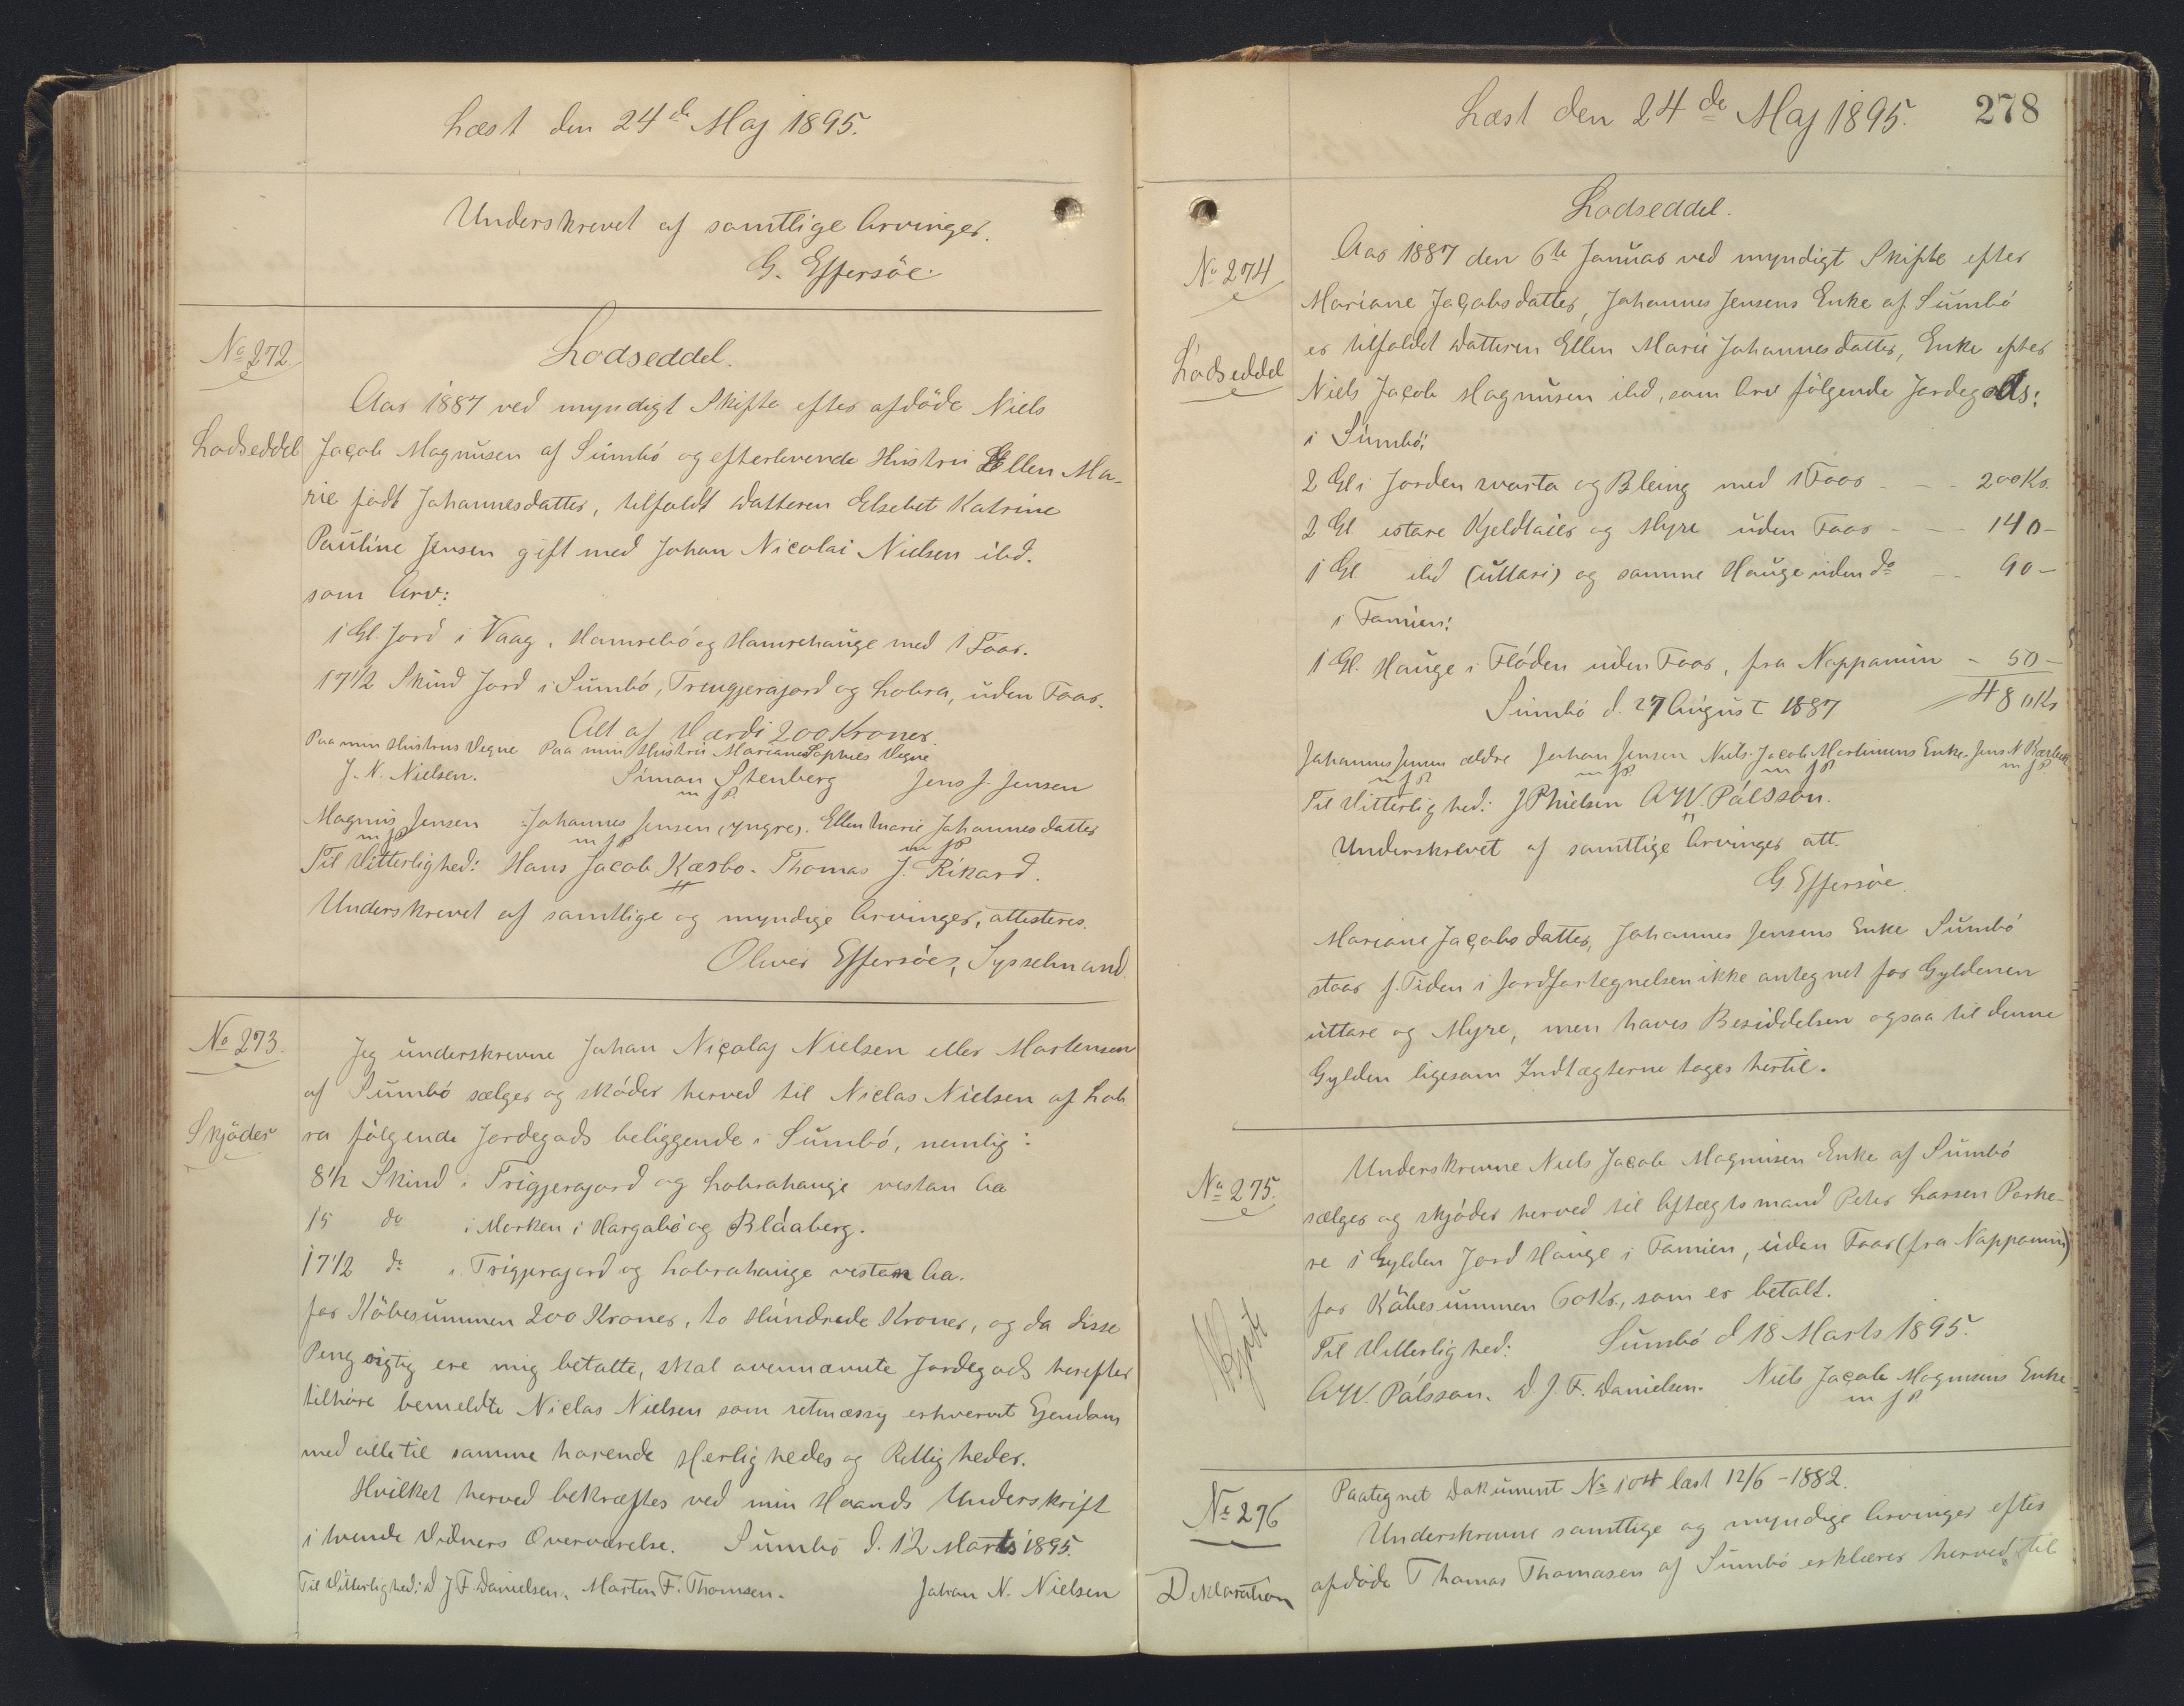 Læst den 24de Maj 1895.
Underskrevet af samtlige Arvinger.
G. Effersöe.
No 272.
Lodseddel
Lodseddel.
Aar 1887 ved myndigt Skifte efter afdöde Niels
Jaçob Magnusen af Sumbö og efterlevende Hustru Ellen Ma-
rie födt Johannesdatter, tilfaldt Datteren Elsebet Katrine
Pauline Jensen gift med Johan Nicolai Nielsen ibd.
som Arv:
1 Gl. Jord i Vaag, Hamrebö og Hamrehauge med 1 Faar.
17 1/2 Skind Jord i Sumbö, Trengjerajord og Lobra, uden Faar.
Alt af Værdi 200 Kroner.
Paa min Hustrus Vegne Paa min Hustru Mariane Sophies Vegne
J. N. Nielsen. Simon Stenberg Jens J. Jensen
m f P.
Magnus Jensen Johannes Jensen (yngre). Ellen Marie Johannesdatter
m f P m f P m f P
Til Vitterlighed: Hans Jacob Kæsbo. Thomas J. Rikard.
Underskrevet af samtlige og myndige Arvinger, attesteres.
Oliver Effersöe, Sysselmand.
No 273.
Skjöder
Jeg underskrevne Johan Niçolaj Nielsen eller Mortensen
af Sumbö sælger og sköder herved til Niclas Nielsen af Lob
ra fölgende Jordegods beliggende i Sumbö, nemlig:
8 1/2 Skind i Trigjerajord og Lobrahauge vestan Aa
15 do i Marken i Hargabö og Blåaberg.
17 1/2 do i Trigjerajord og Lobrahauge vestan Aa.
for Köbesummen 200 Kroner, to Hundrede Kroner, og da disse
Peng rigtig ere mig betalte, skal ovennævnte Jordegods herefter
tilhöre bemeldte Niclas Nielsen som retmæssig erhvervet Ejendom
med alle til samme hörende Herligheder og Rettigheder.
Hvilket herved bekræftes ved min Haands Underskrift
i tvende Vidners Overværelse. Sumbö d. 12 Marts 1895.
Til Vitterlighed: D J F Danielsen, Morten F. Thomsen. Johan N. Nielsen
Læst den 24de Maj 1895. 278
No 274
Lodseddel
Lodseddel.
Aar 1887 den 6te Januar ved myndigt Skifte efter
Mariane Jaçobsdatter, Johannes Jensens Enke af Sumbö
er tilfaldet Datteren Ellen Marie Johannesdatter, Enke efter
Niels Jaçob Magnusen ibd, som Arv fölgende Jordegods:
i Sumbö:
2 Gl i Jorden svarta og Bleing med 1 Faar - - 200 Kr.
2 Gl estare Kjeldtaier og Myre uden Faar - - 140 -
1 Gl. ibd (uttari) og samme Hauge uden do - - 90 -
i Famien:
1 Gl. Hauge i Flöden uden Faar, fra Noppamin - 50 -
Sumbö d. 27 August 1887 480 Kr
Johannes Jensen ældre Johan Jensen Niels Jacob Martinsens Enke. Jens N.
m f P m f P m f P m f P
Til Vitterlighed: J P Nielsen A W. Pálsson.
Underskrevet af samtlige Arvinger att.
G. Effersöe.
Mariane Jaçobsdatter, Johannes Jensens Enke Sumbö
staar f. Tiden i Jordfortegnelsen ikke antegnet for Gyldenen
uttare og Myre, men haves Besiddelsen ogsaa til denne
Gylden ligesom Indtægterne tages hertil.
No 275.
Underskrevne Niels Jaçob Magnusen Enke af Sumbö
sælger og skjöder herved til Aftægtsmand Peter Larsen Porke-
re 1 Gylden Jord Hauge i Famien, uden Faar (fra Nappamin)
for Köbesummen 60 Kr, som er betalt.
Til Vitterlighed: Sumbö d 18 Marts 1895.
A W. Pálsson. D. J. F. Danielsen. Niels Jaçob Magnusens Enke
m f P
No 276
Deklaration
Paategnet Dokument No 104 læst 12/6 - 1882.
Underskrevne samtlige og myndige Arvinger efter
afdöde Thomas Thomasen af Sumbö erklærer herved, til